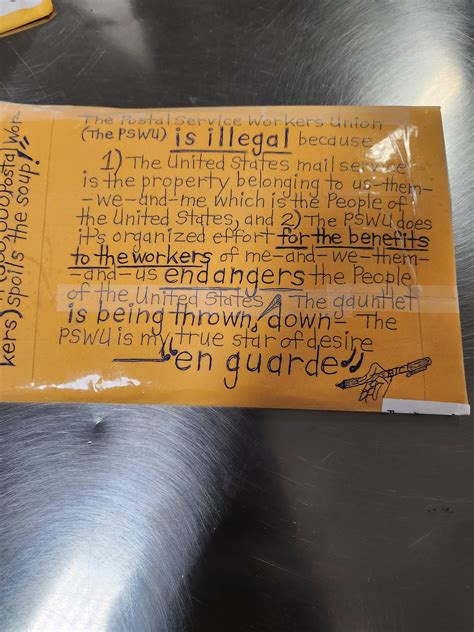 The Postal Service Workers Union
(The PSWU) is illegal because
1) The United States mail service
is the property belonging to us-them-
-we-and-me which is the People of
the United States, and 2) The PSWU does
it's organized effort for the benefits
to the workers of me-and-we-them-
-and-us endangers the People
of the United States The gauntlet
is being thrown, down- The
PSWU is my true star of desire
"en guarde"
Postal Wor
kers) spoils the soup!